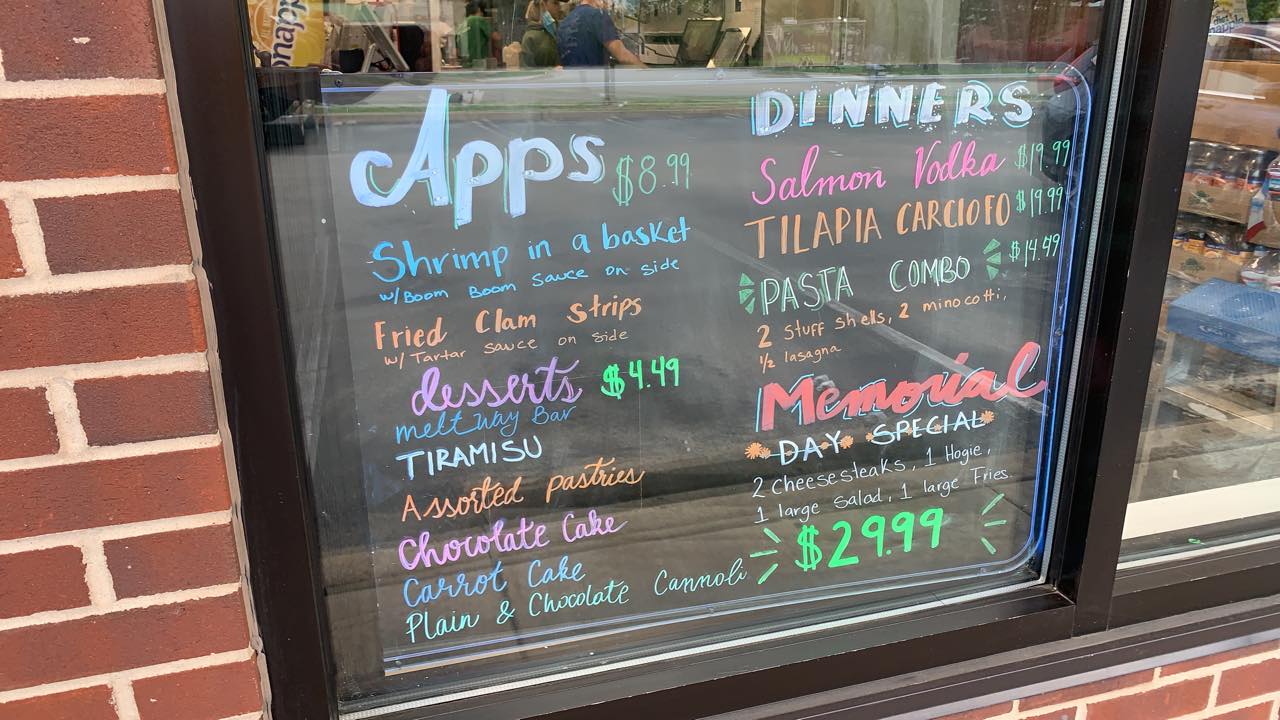 Apps $8.99
Shrimp in a basket
w/Boom Boom Sauce on side
Fried Clam Strips
w/ Tartar sauce on side
desserts $4.49
meltway Bar
TIRAMISU
Assorted pastries
Chocolate Cake
Carrot Cake
Plain & Chocolate Cannoli
DINNERS
Salmon Vodka $19.99
TILAPIA CARCIOFO $19.99
PASTA COMBO $14.49
2 Stuff shells, 2 minocotti,
1/2 lasagna
Memorial
DAY SPECIAL
2 Cheesesteaks, 1 Hogie,
1 large Salad, 1 large Fries.
$29.99